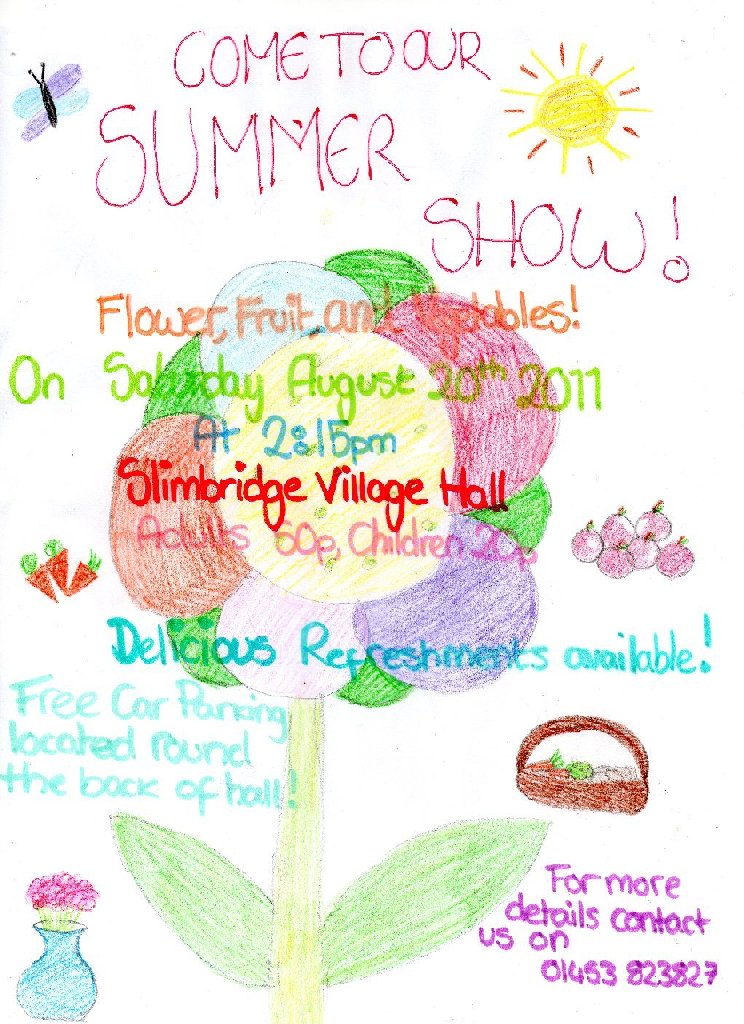 COME TO OUR
SUMMER
SHOW!
Flower, Fruit, and Vegetables!
On Saturday August 20th 2011
At 2:15pm
Slimbridge Village Hall
Adults 60p, Children 20p
Delicious Refreshments available!
Free Car Parking
located round
the back of hall!
For more
details contact
us on
01453 823827